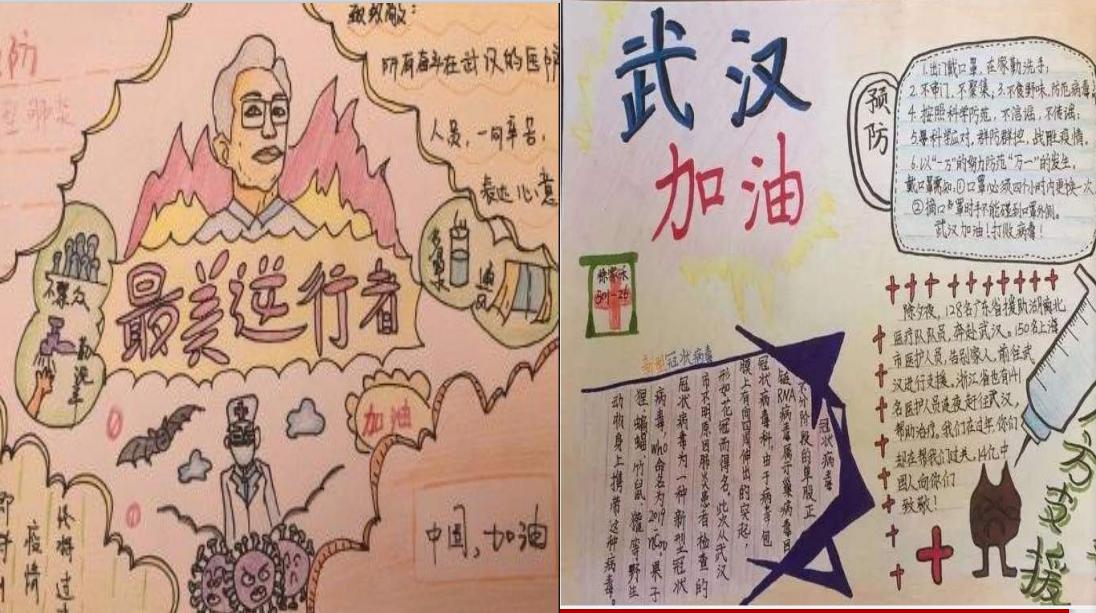 防
型肺炎
致敬:
所有奋斗在武汉的医护
人员,一同辛苦,
表达心意
不聚众
勤洗手
通风
最美逆行者
加油
中国,加油
疫情
终将过
武汉
加油
预防
1.出门戴口罩,在家勤洗手;
2.不串门,不聚集,3.不食野味,防范病毒;
4.按照科学防范,不信谣,不传谣;
5.要科学应对,群防群控,战胜疫情。
6.以“一万”的努力防范“万一”的发生。
戴口罩需知:①口罩必须四个小时内更换一次
②摘口罩时手不能碰到口罩外侧。
武汉加油!打败病毒!
除夕夜,128名广东省援助湖南北
医疗队队员,奔赴武汉。150名上海
市医护人员,告别家人,前往武
汉进行支援。浙江省也有141
名医护人员连夜赶往武汉,
帮助治疗。我们在过年,你们
却在帮我们过关,14亿中
国人向你们
致敬!
新型冠状病毒
冠状病毒
不分阶段的单股正
链RNA病毒属于巢病毒目
冠状病毒科,由于病毒包
膜上有向四周伸出的突起,
形如花冠而得名。此次从武汉
市不明原因肺炎患者检查的
冠状病毒为一种新型冠状
病毒,WHO命名为2019-nCoV,果子
狸、蝙蝠、竹鼠、獾等野生
动物身上携带这种病毒。
万
支援